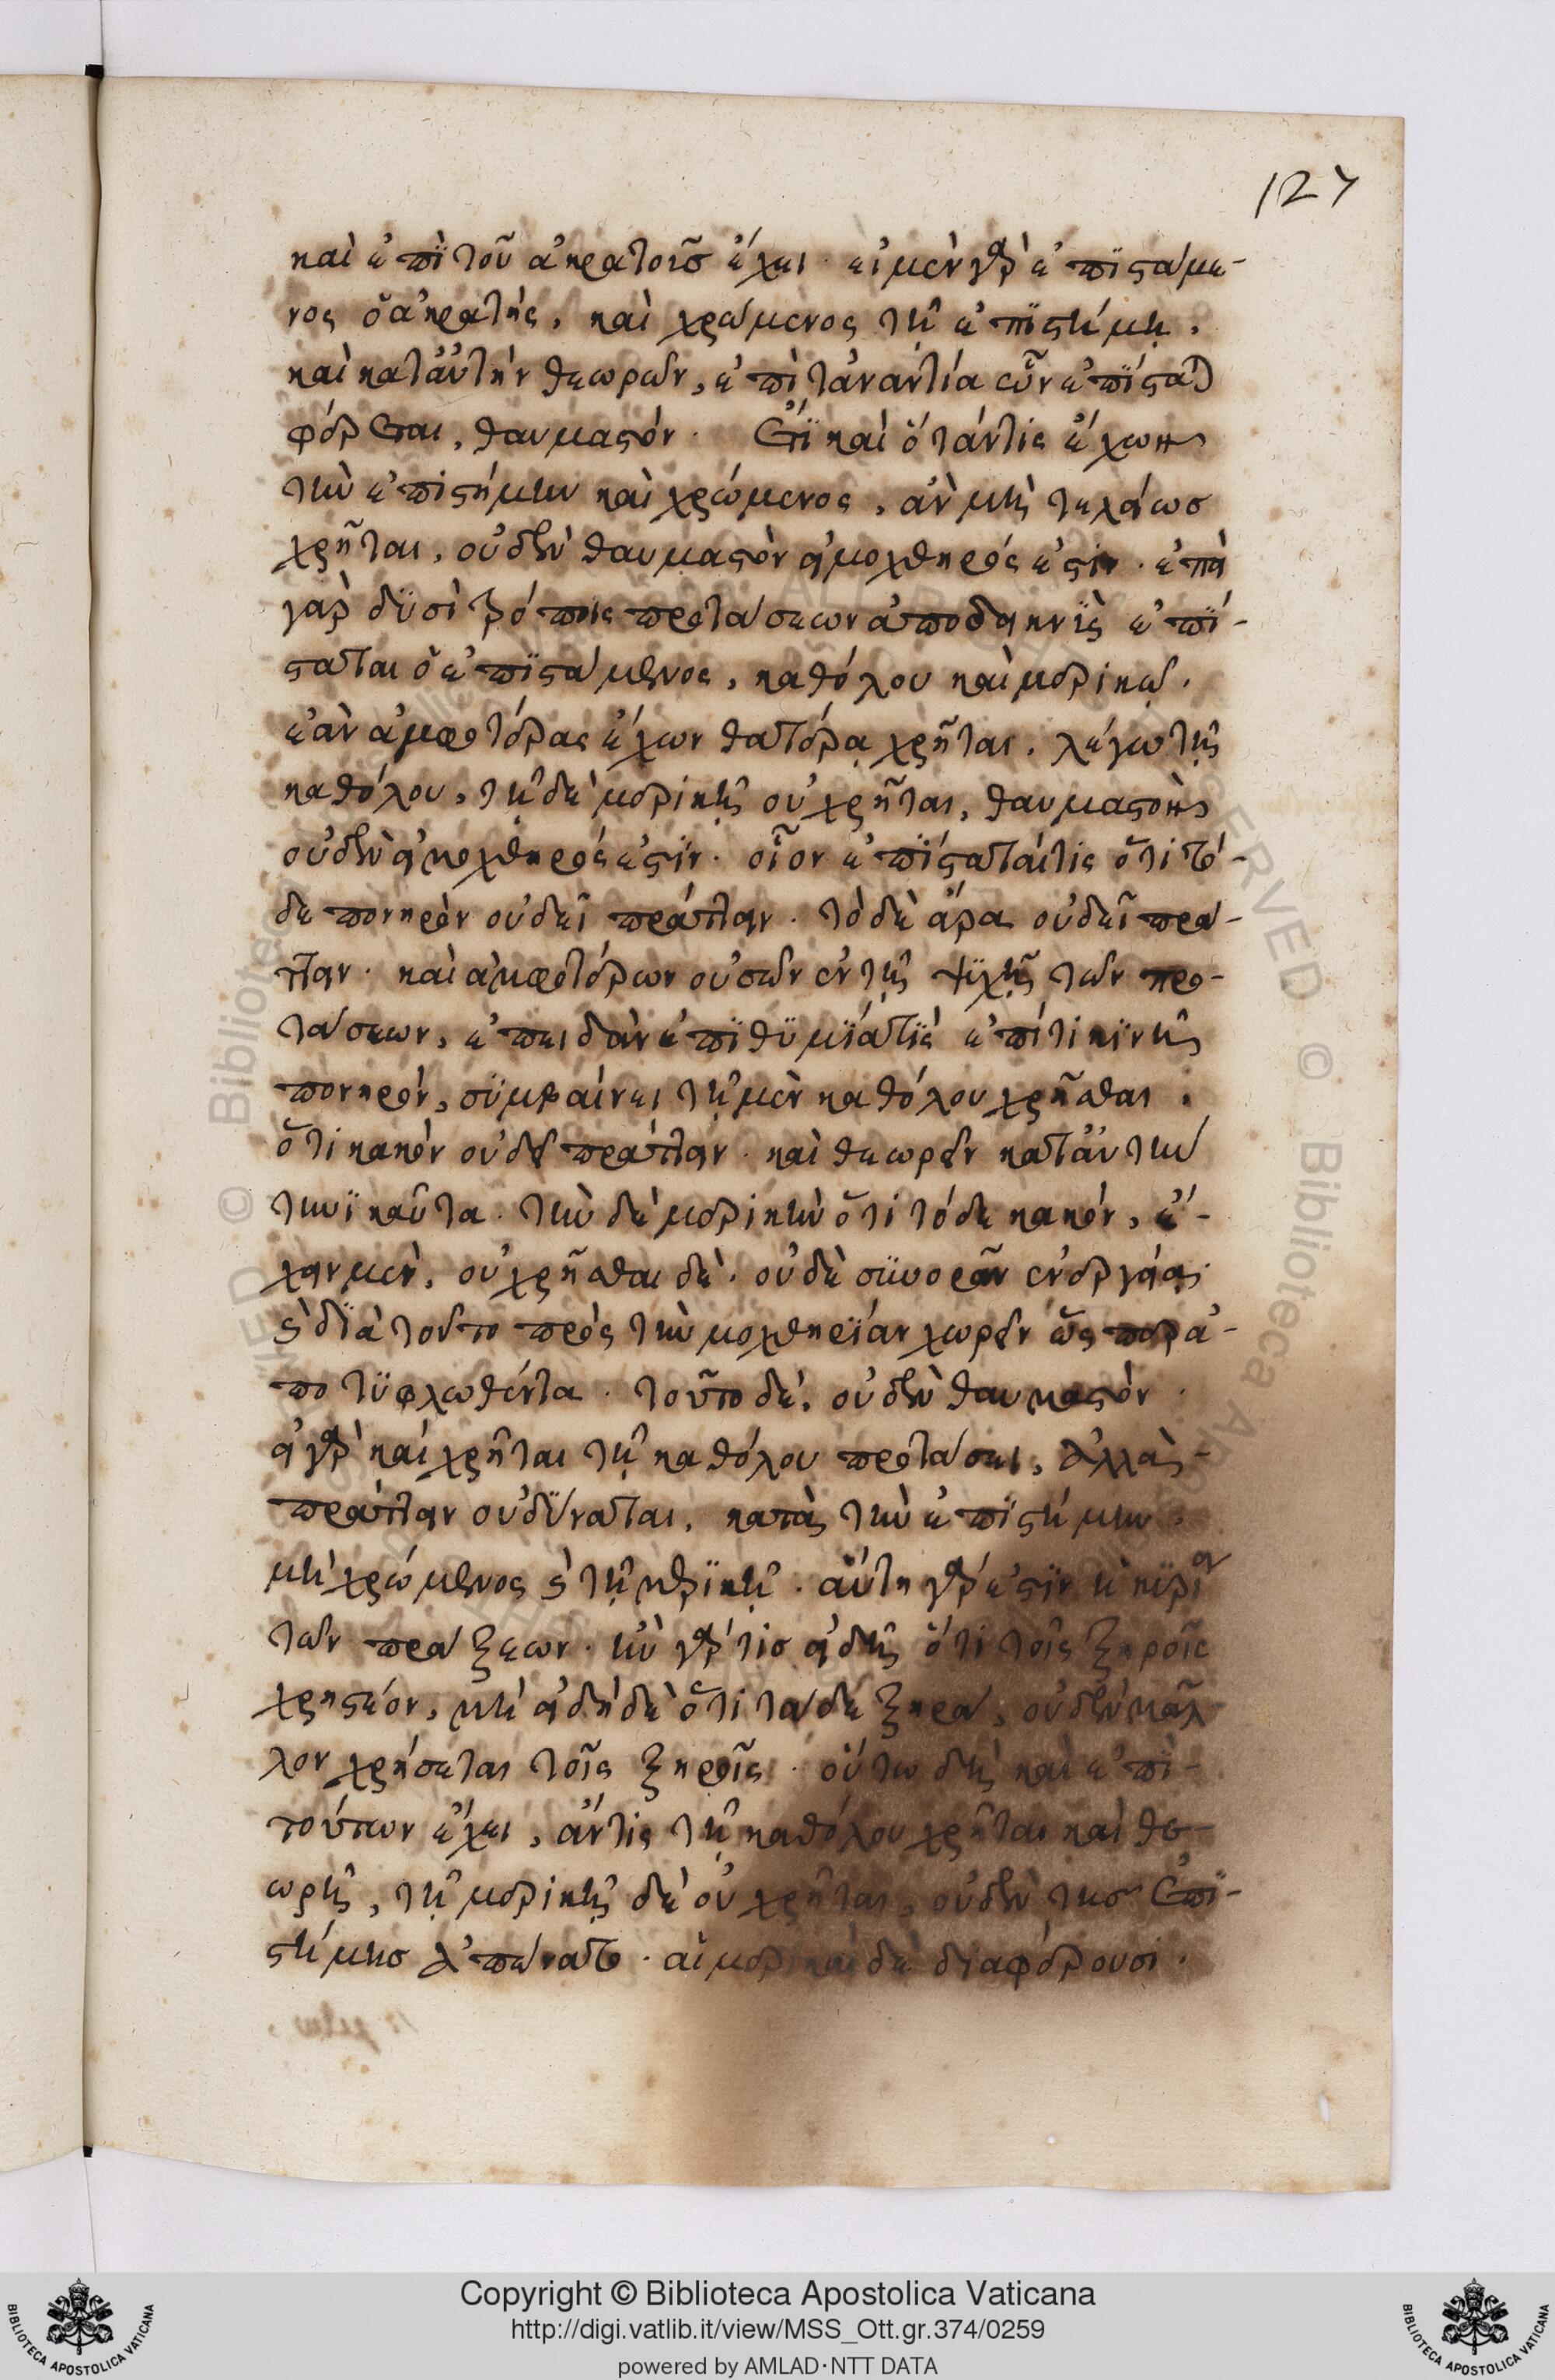 127
καὶ ἐπὶ τοῦ ἀκρατοῦς ἔχει· εἰ μὲν γὰρ ἐπιστάμε-
νος ὁ ἀκρατὴς, καὶ χρώμενος τῇ ἐπιστήμῃ,
καὶ κατ' αὐτὴν θεωρῶν, ἐπὶ τἀναντία ὧν ἐπίσταται
φέρεται, θαυμαστόν· ἔτι καὶ ὅταν τις ἔχων
τὴν ἐπιστήμην καὶ χρώμενος, ἂν μὴ τελείως
χρῆται, οὐδὲν θαυμαστὸν εἰ μοχθηρός ἐστιν· ἐπεὶ
γὰρ δυσὶ τρόποις προτάσεων ἀποδεικνὺς ἐπί-
σταται ὁ ἐπιστάμενος, καθόλου καὶ μερικῶς,
ἐὰν ἀμφοτέρας ἔχων θατέρᾳ χρῆται, λέγω τῇ
καθόλου, τῇ δὲ μερικῇ οὐ χρῆται, θαυμαστὸν
οὐδὲν εἰ μοχθηρός ἐστιν· οἷον ἐπίσταταί τις ὅτι τό-
δε πονηρὸν οὐ δεῖ πράττειν· τόδε ἄρα οὐ δεῖ πρά-
ττειν· καὶ ἀμφοτέρων οὐσῶν ἐν τῇ ψυχῇ τῶν προ-
τάσεων, ἐπειδὰν ἐπιθυμία τις ἐπί τι κινῇ
πονηρόν, συμβαίνει τῇ μὲν καθόλου χρῆσθαι,
ὅτι κακὸν οὐ δεῖ πράττειν· καὶ θεωρεῖν κατ' αὐτὴν
τηνικαῦτα· τὴν δὲ μερικὴν ὅτι τόδε κακόν, ἔ-
χειν μὲν, οὐ χρῆσθαι δὲ· οὐδὲ συνορᾶν ἐνεργείᾳ·
καὶ διὰ τοῦτο πρὸς τὴν μοχθηρίαν χωρεῖν ὥσπερ ἀ-
ποτυφλωθέντα· τοῦτο δὲ, οὐδὲν θαυμαστὸν·
εἰ γὰρ καὶ χρῆται τῇ καθόλου προτάσει, ἀλλὰ
πράττειν οὐ δύναται, κατὰ τὴν ἐπιστήμην,
μὴ χρώμενος καὶ τῇ μερικῇ· αὕτη γάρ ἐστιν ἡ κυρία
τῶν πράξεων· ἢν γάρ τις εἰδῇ ὅτι τοῖς ξηροῖς
χρηστέον, μὴ εἰδῇ δὲ ὅτι τάδε ξηρά, οὐδὲν μᾶλ
λον χρήσεται τοῖς ξηροῖς· οὕτω δὴ καὶ ἐπὶ
τούτων ἔχει, ἄν τις τῇ καθόλου χρῆται καὶ θε-
ωρῇ, τῇ μερικῇ δὲ οὐ χρῆται, οὐδὲν τῆς ἐπι-
στήμης ἀπώνατο· αἱ μερικαὶ δὲ διαφέρουσι·
Copyright © Biblioteca Apostolica Vaticana
http://digi.vatlib.it/view/MSS_Ott.gr.374/0259
powered by AMLAD·NTT DATA
BIBLIOTECA APOSTOLICA VATICANA
BIBLIOTECA APOSTOLICA VATICANA